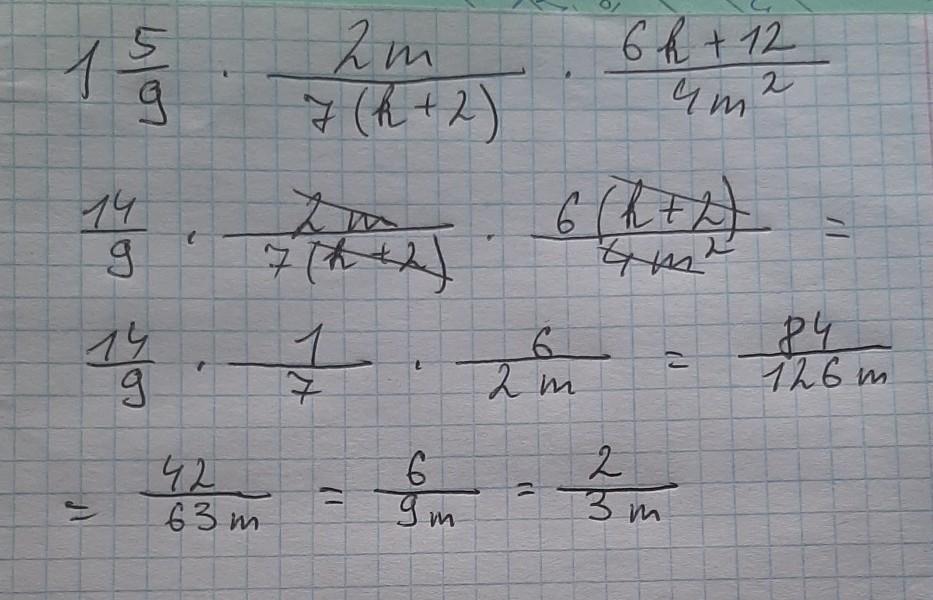 1 5/9 · 2m/7(k+2) · 6k+12/4m²
14/9 · 2m/7(k+2) · 6(k+2)/4m² =
14/9 · 1/7 · 6/2m = 84/126m
= 42/63m = 6/9m = 2/3m